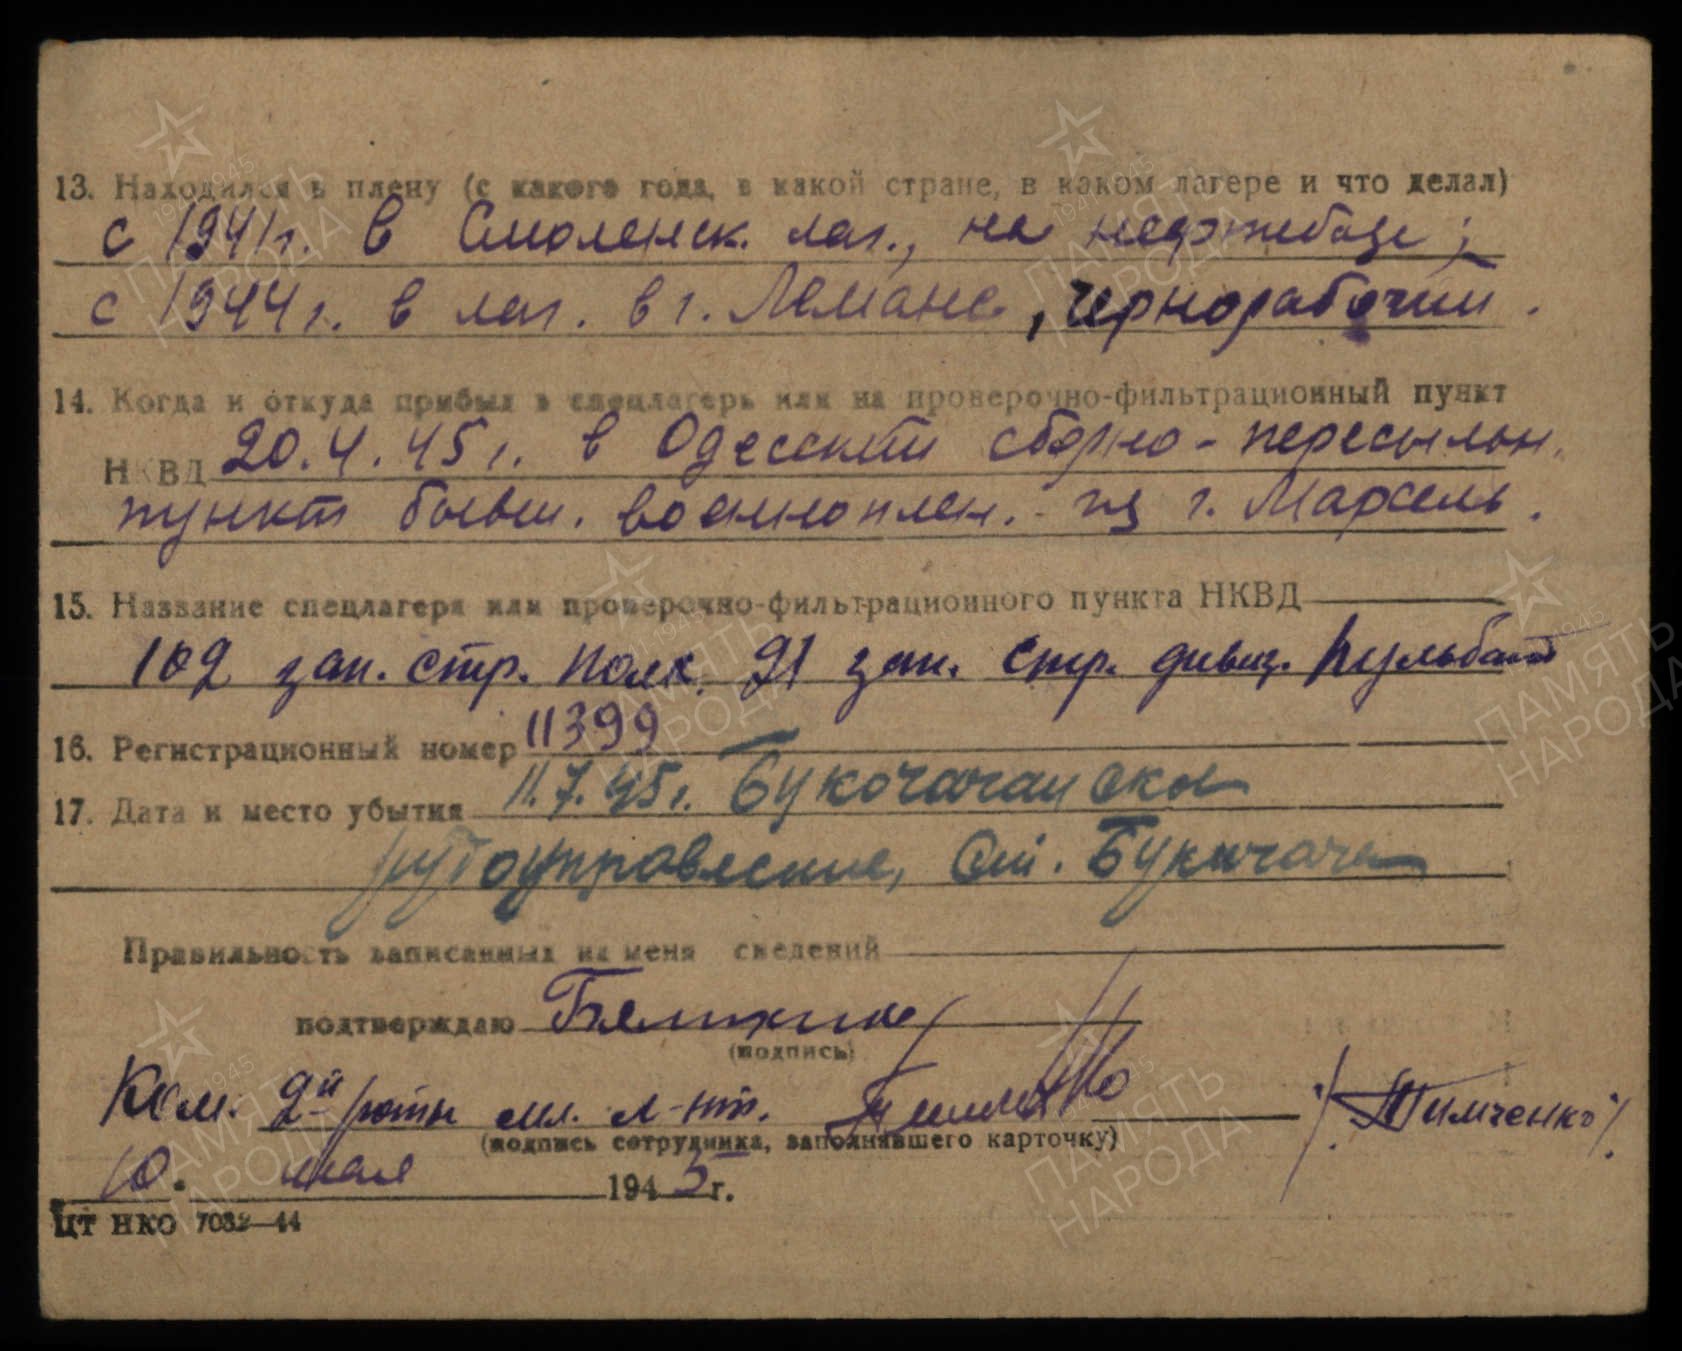 13. Находился в плену (с какого года, в какой стране, в каком лагере и что делал)
с 1941г. в Смоленск. лаг., на нефтебазе;
с 1944г. в лаг. в г. Леманс, чернорабочий.
14. Когда и откуда прибыл в спецлагерь или на проверочно-фильтрационный пункт
НКВД 20.4.45г. в Одесский сборно-пересыльн.
пункт бывш. военноплен. - из г. Марсель.
15. Название спецлагеря или проверочно-фильтрационного пункта НКВД
102 зап. стр. полк. 21 зап. стр. дивиз.
16. Регистрационный номер 11399
17. Дата и место убытия 11.7.45г. Букочачанское
рудоуправление, ст. Букачача
Правильность записанных на меня сведений
подтверждаю
(подпись)
Ком. 2й роты мл. л-нт. /Тимченко/.
(подпись сотрудника, заполнявшего карточку)
10. мая 1945г.
ЦТ НКО 7032—44
ПАМЯТЬ НАРОДА
1941 1945